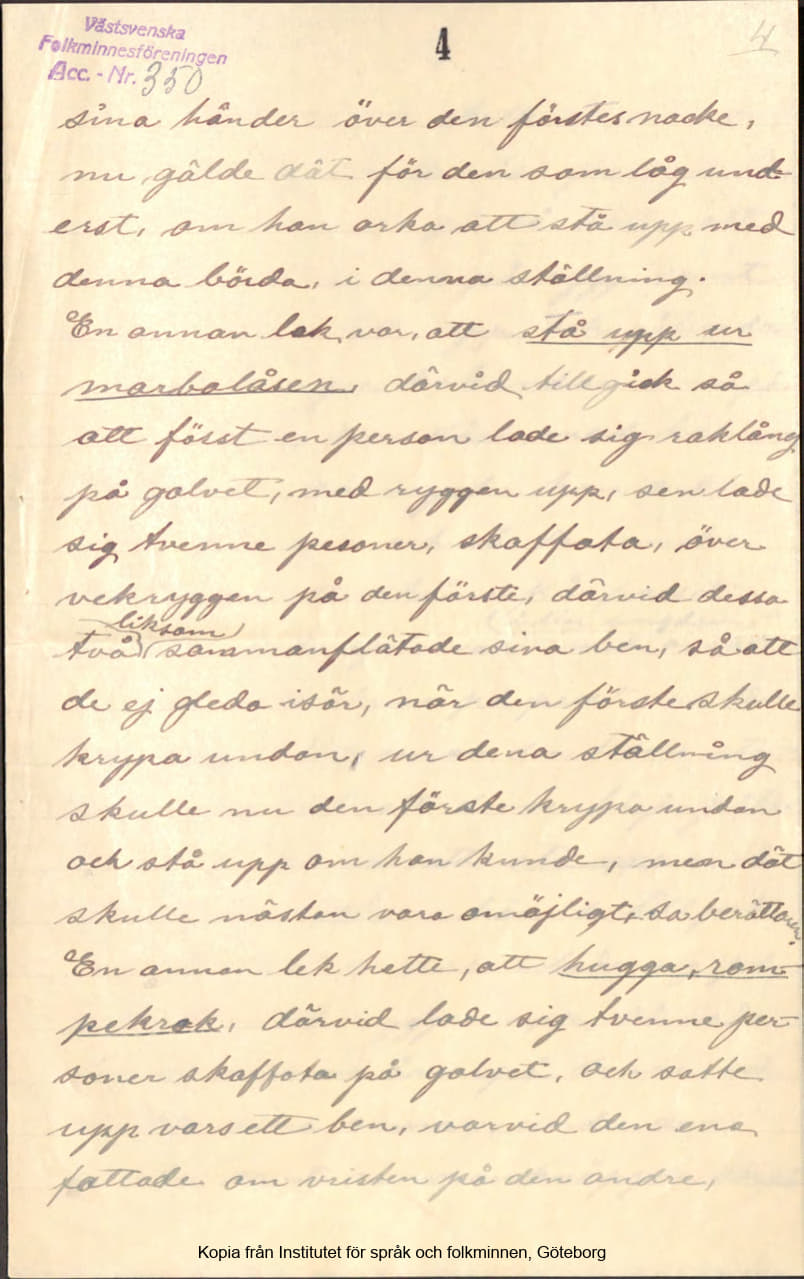 Västsvenska
Folkminnesföreningen
Acc. - Nr. 350
4
4
sina händer över den förstes nacke,
nu gälde dät för den som låg und-
erst, om han orka att stå upp med
denna börda, i denna ställning.
En annan lek var, att stå upp ur
marbolåsen, därvid tillgick så
att fösst en person lade sig raklång
på golvet, med ryggen upp, sen lade
sig tvenne pesoner, skaffota, över
vekryggen på den förste, därvid dessa
två (liksom) sammanflätade sina ben, så att
de ej gleda isär, när den förste skulle
krypa undan, ur dena ställning
skulle nu den förste krypa undan
och stå upp om han kunde, men dät
skulle nästan vara omöjligt, sa berättaren.
En annan lek hette, att hugga, rom-
pekrok, därvid lade sig tvenne per-
soner skaffota på golvet, och satte
upp vars ett ben, varvid den ena
fattade om vristen på den andre,
Kopia från Institutet för språk och folkminnen, Göteborg